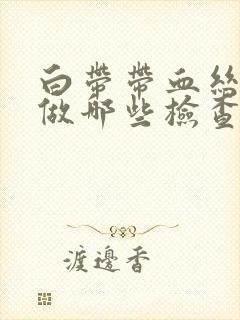 白带带血丝
做那些检查
渡边香